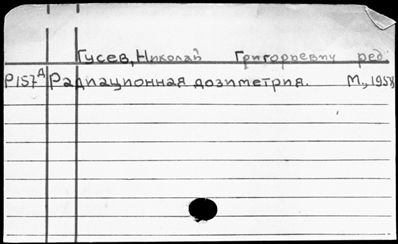 Гусев, Николай Григорьевич ред.
Р157д Радиационная дозиметрия. М., 1958